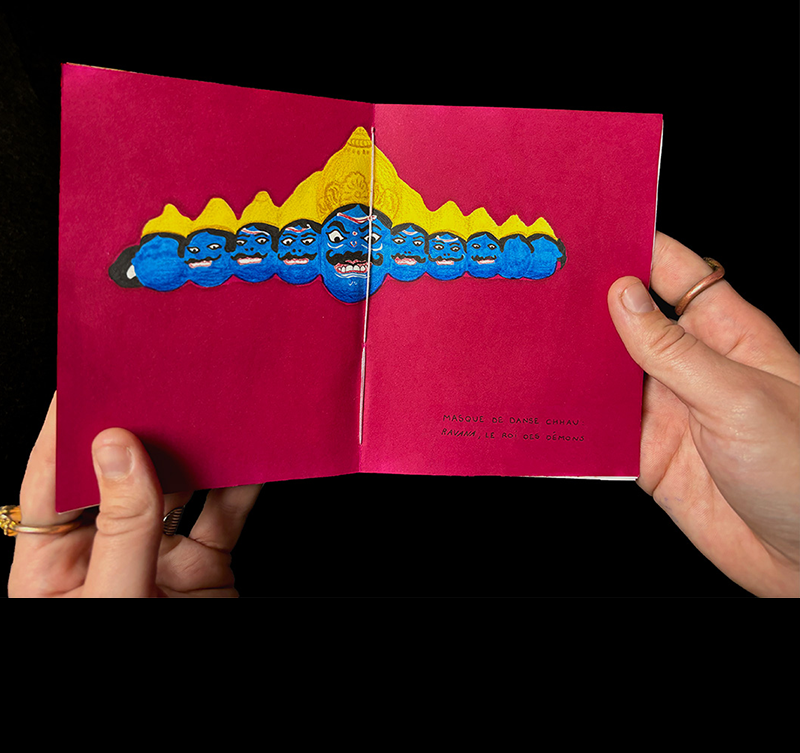 MASQUE DE DANSE CHHAU :
RAVANA, LE ROI DES DÉMONS